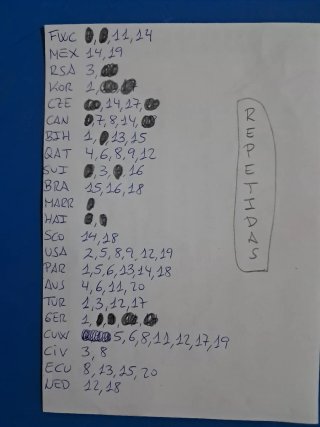 FWC 11, 14
MEX 14, 19
RSA 3,
KOR 1,
CZE 14, 17,
CAN 7, 8, 14,
BIH 1, 13, 15
QAT 4, 6, 8, 9, 12
SUI 3, 16
BRA 15, 16, 18
MARR
HAI
SCO 14, 18
USA 2, 5, 8, 9, 12, 19
PAR 1, 5, 6, 13, 14, 18
AUS 4, 6, 11, 20
TUR 1, 3, 12, 17
GER 1,
CUW 5, 6, 8, 11, 12, 17, 19
CIV 3, 8
ECU 8, 13, 15, 20
NED 12, 18
REPETIDAS